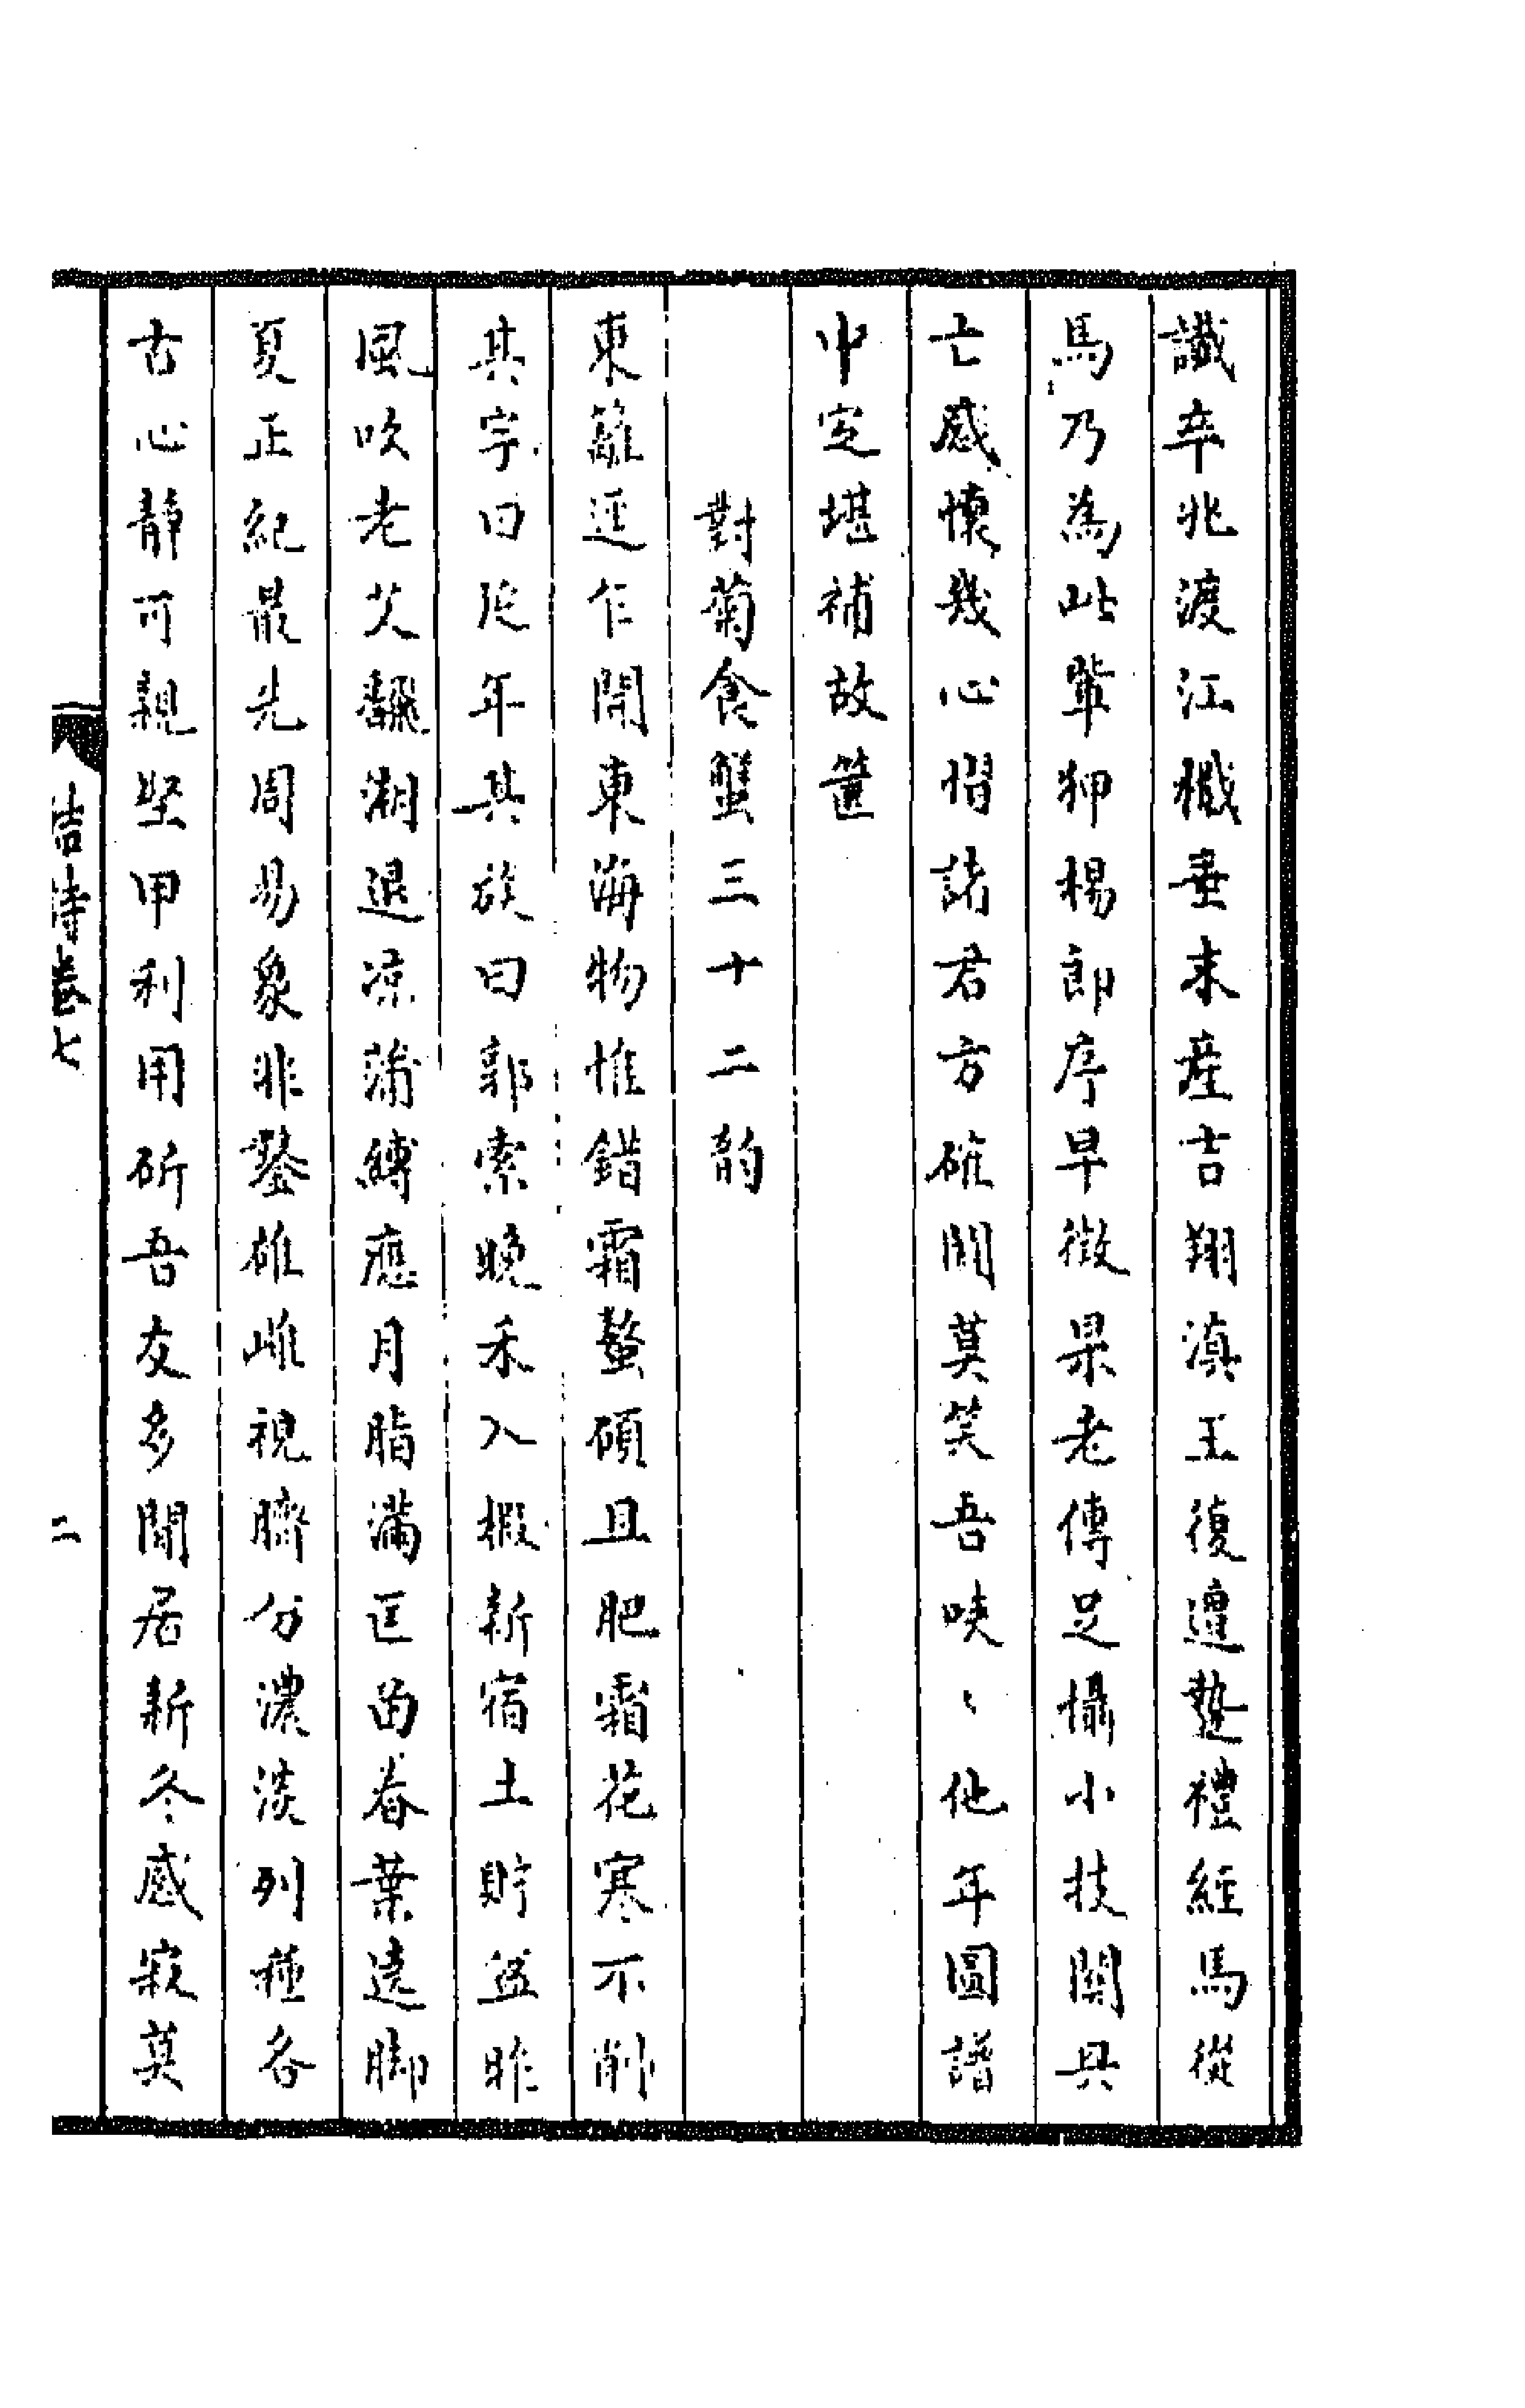 讖卒兆渡江檝垂来產吉翔滇王復遭蟄禮經馬從
馬乃為此輩狎楊郎序早徵果老傳足攝小技關興
亡感懷幾心慴諸君方雄鬨莫笑吾唊、他年圖譜
中定堪補故篋
對菊食蟹三十二韵
東籬延乍開東海物惟錯霜螯碩且肥霜花寒不削
其字曰延年其族曰郭索晚禾入椵新宿土貯盆昨
風吹老艾飜潮退凉蒲縛應月脂滿匡函春葉遶脚
夏正紀最先周易象非鑿雄雌視臍分濃淡列種各
古心靜可親堅甲利用斫吾友多閒居新冬感寂莫
詩卷七
二